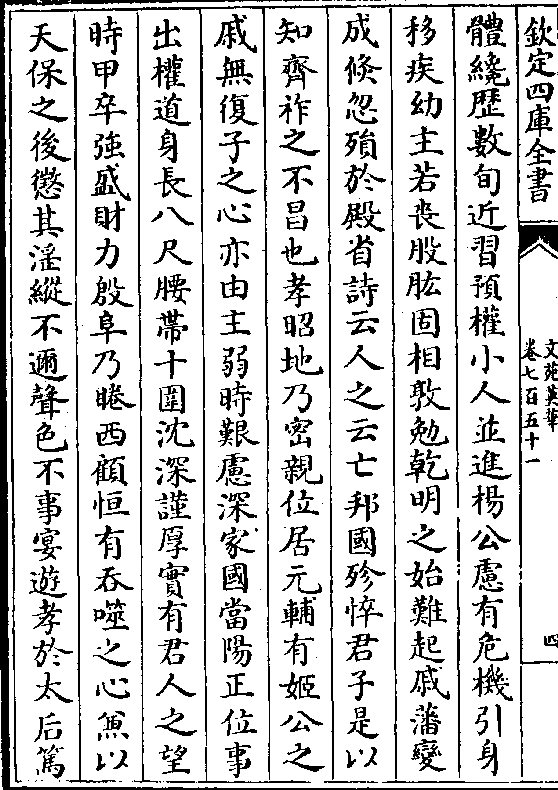 欽定四庫全書
文苑英華
卷七百五十一
四
體纔歴數旬近習預權小人並進楊公慮有危機引身
移疾幼主若喪股肱固相敦勉乾明之始難起戚藩變
成倏忽殞於殿省詩云人之云亡邦國殄悴君子是以
知齊祚之不昌也孝昭地乃密親位居元輔有姬公之
戚無復子之心亦由主弱時艱慮深家國當陽正位事
出權道身長八尺腰帶十圍沈深謹厚實有君人之望
時甲卒強盛財力殷阜乃睠西顧恒有吞噬之心兼以
天保之後懲其淫縱不邇聲色不事宴遊孝於太后篤